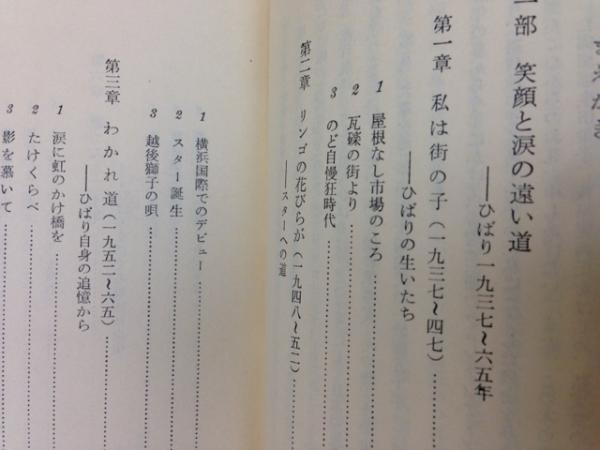 まえがき
一部 笑顔と涙の遠い道
――ひばり一九三七〜六五年
第一章 私は街の子（一九三七〜四七）
――ひばりの生いたち
1 屋根なし市場のころ
2 瓦礫の街より
3 のど自慢狂時代
第二章 リンゴの花びらが（一九四八〜五二）
――スターへの道
1 横浜国際でのデビュー
2 スター誕生
3 越後獅子の唄
第三章 わかれ道（一九五二〜六五）
――ひばり自身の追憶から
1 涙に虹のかけ橋を
2 たけくらべ
3 影を慕いて